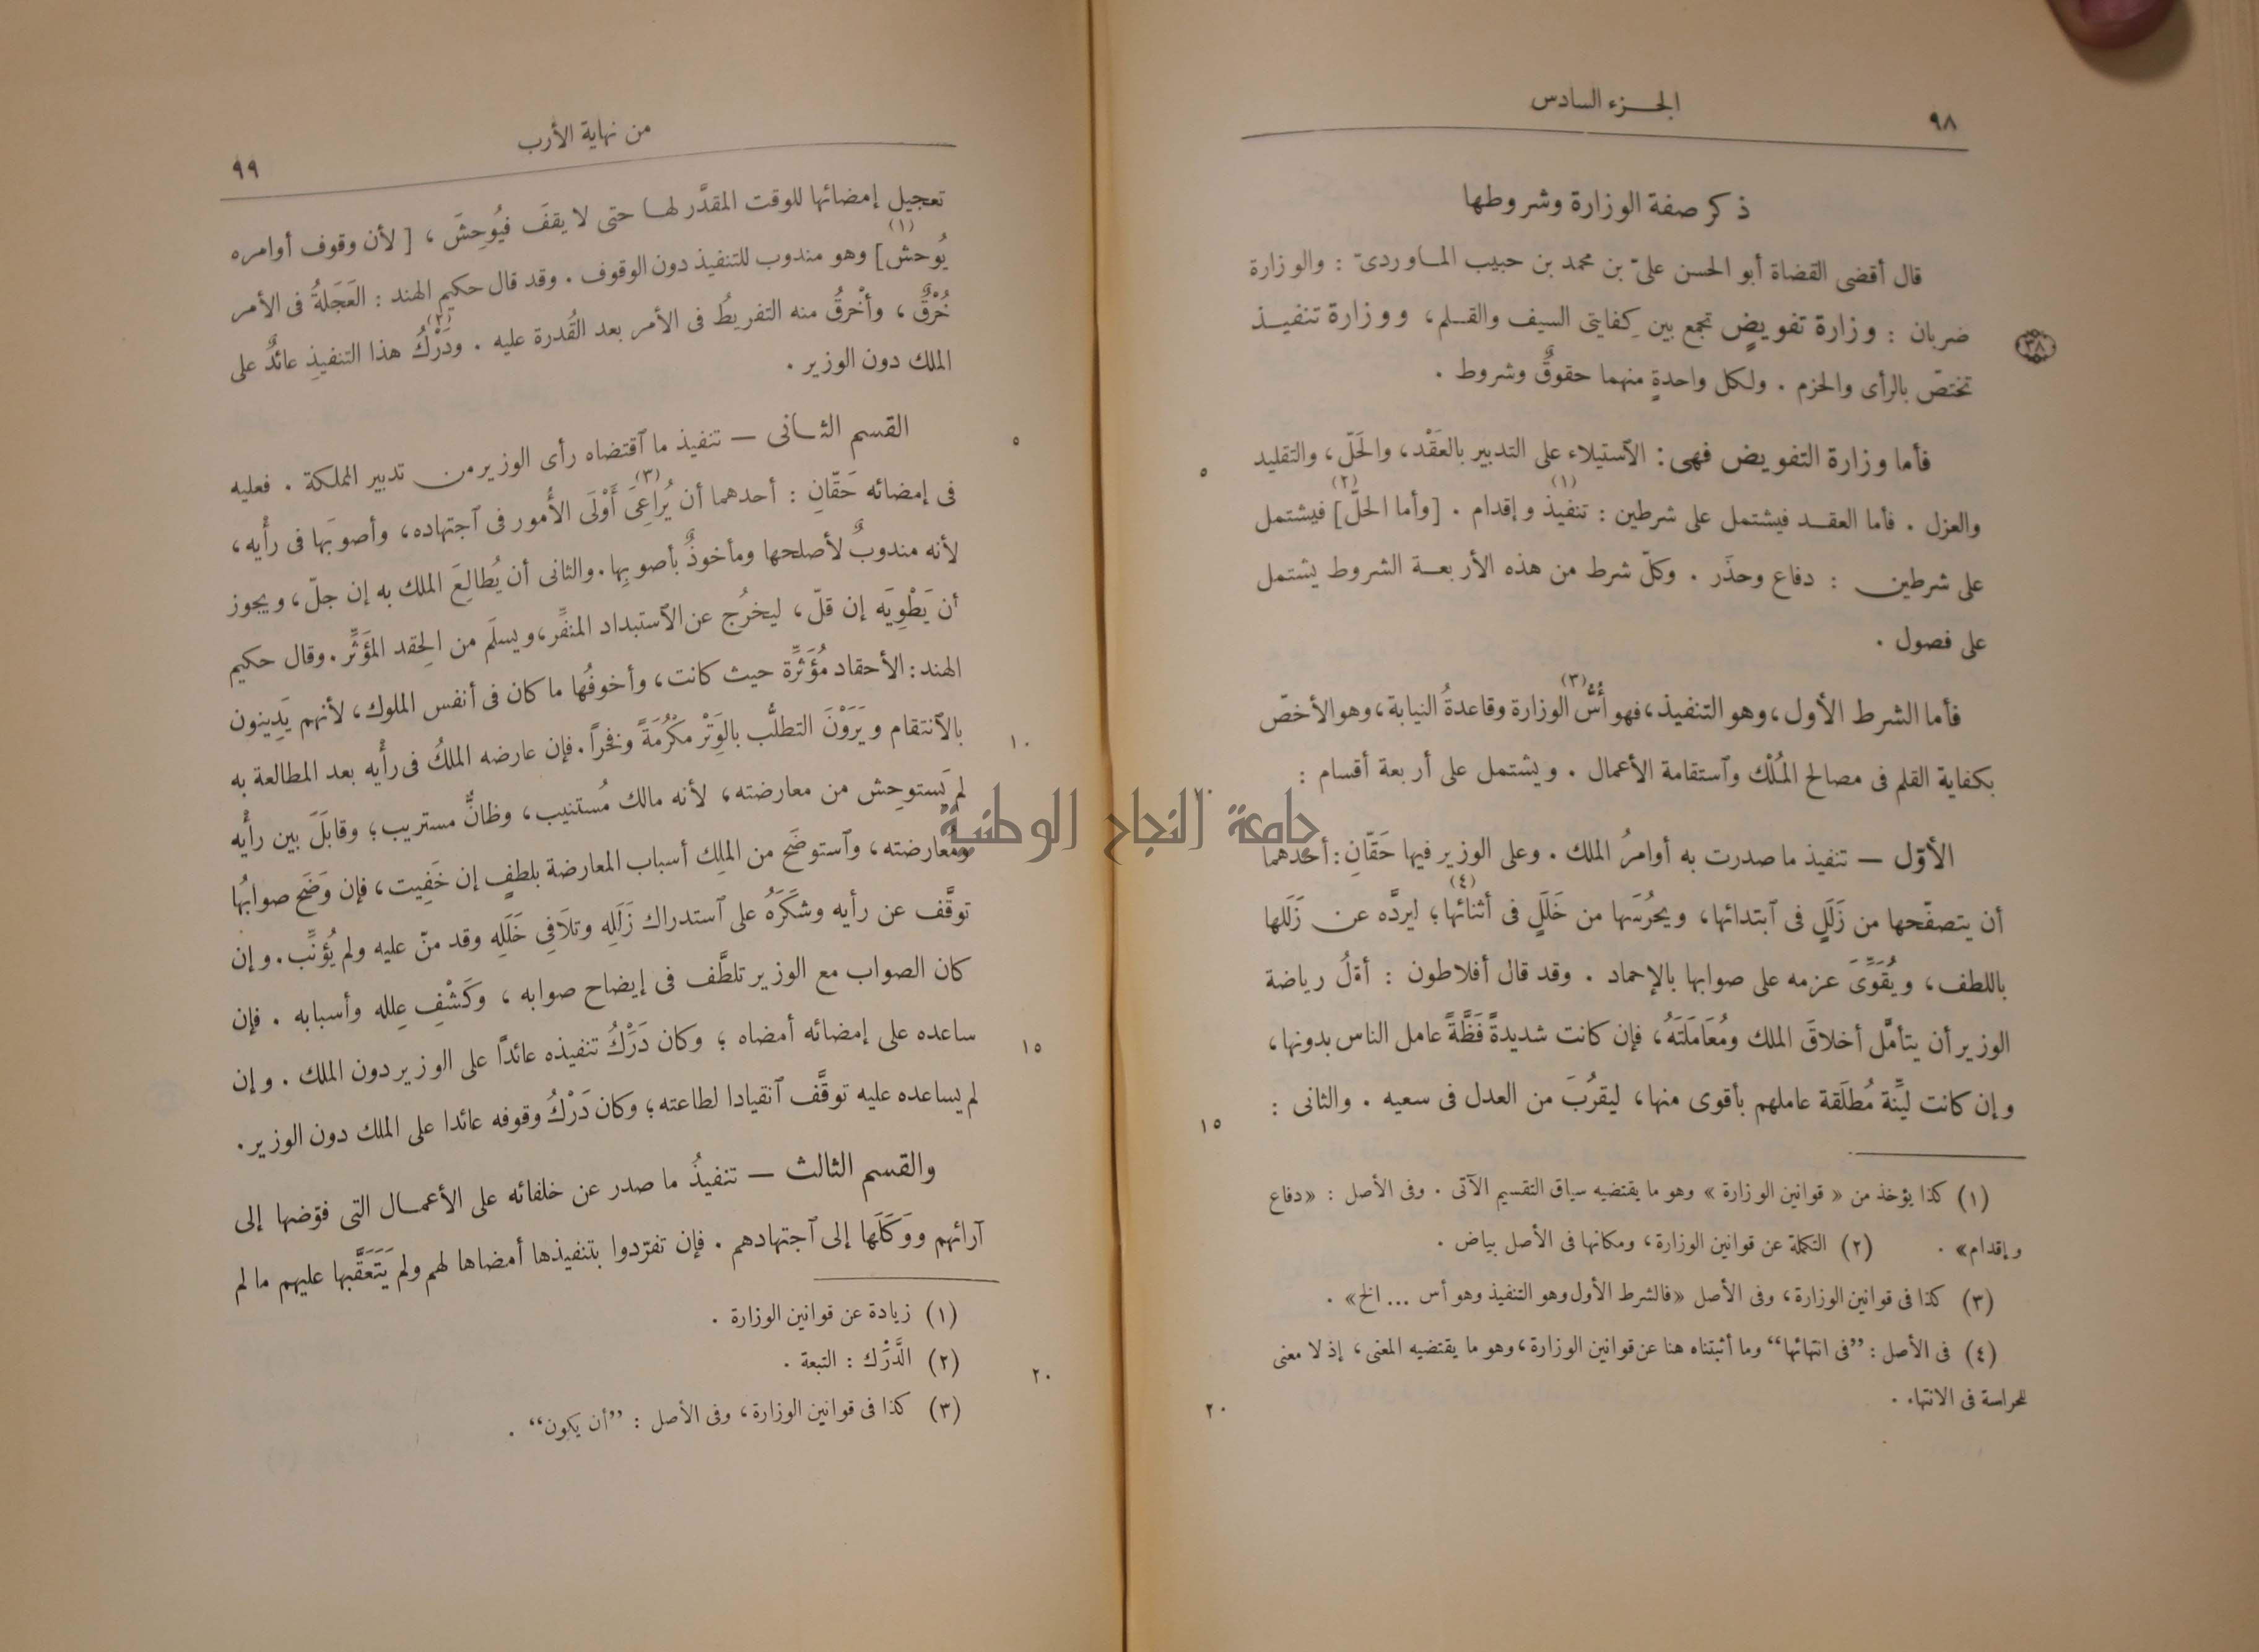 ٩٨
الجـزء السادس
ذكر صفة الوزارة وشروطها
قال أقضى القضاة أبو الحسن علىّ بن محمد بن حبيب المـاوردىّ : والوزارة
ضربان : وزارة تفويضٍ تجمع بين كِفايتى السيف والقـلم، ووزارة تنفيـذ
٣٨
تختصّ بالرأى والحزم . ولكل واحدةٍ منهما حقوقٌ وشروط .
فأما وزارة التفويض فهى : الاستيلاء على التدبير بالعَقْد، والحَلّ، والتقليد
٥
والعزل . فأما العقـد فيشتمل على شرطين : تنفيذ (١) وإقدام . [وأما الحلّ] (٢) فيشتمل
على شرطين : دفاع وحذَر . وكلّ شرط من هذه الأربعـة الشروط يشتمل
على فصول .
فأما الشرط الأول، وهو التنفيذ، فهو أُسُّ (٣) الوزارة وقاعدةُ النيابة، وهو الأخصّ
بكفاية القلم فى مصالح المُلْك وٱستقامة الأعمال . ويشتمل على أربعة أقسام :
١٠
الأوّل — تنفيذ ما صدرت به أوامرُ الملك . وعلى الوزير فيها حَقّانِ : أحدهما
أن يتصفّحها من زَلَلٍ فى ٱبتدائها، ويحرُسَها من خَلَلٍ فى أثنائها (٤)؛ ليردّه عن زَلَلها
باللطف، ويُقَوِّىَ عزمه على صوابها بالإحماد . وقد قال أفلاطون : أوّلُ رياضة
الوزير أن يتأمَّل أخلاقَ الملك ومُعَامَلَتَهُ، فإن كانت شديدةً فَظَّةً عامل الناس بدونها،
وإن كانت ليِّنة مُطلَقة عاملهم بأقوى منها، ليقرُبَ من العدل فى سعيه . والثانى :
١٥
(١) كذا يؤخذ من «قوانين الوزارة» وهو ما يقتضيه سياق التقسيم الآتى . وفى الأصل : «دفاع
وإقدام» . (٢) التكملة عن قوانين الوزارة، ومكانها فى الأصل بياض .
(٣) كذا فى قوانين الوزارة، وفى الأصل «فالشرط الأول وهو التنفيذ وهو أس ... الخ» .
(٤) فى الأصل : ”فى انتهائها“ وما أثبتناه هنا عن قوانين الوزارة، وهو ما يقتضيه المعنى، إذ لا معنى
للحراسة فى الانتهاء .
٢٠
من نهاية الأرب
٩٩
تعجيل إمضائها للوقت المقدَّر لهـا حتى لا يقفَ فيُوحِشَ، [لأن وقوف أوامره
يُوحش] (١) وهو مندوب للتنفيذ دون الوقوف . وقد قال حكيم الهند : العَجَلةُ فى الأمر
خُرْقٌ، وأخْرقُ منه التفريطُ فى الأمر بعد القُدرة عليه . ودَرَْكُ (٢) هذا التنفيذِ عائدٌ على
الملك دون الوزير .
القسم الثـانى — تنفيذ ما ٱقتضاه رأى الوزير من تدبير المملكة . فعليه
٥
فى إمضائه حَقّانِ : أحدهما أن يُراعِىَ (٣) أَوْلَى الأُمور فى ٱجتهاده، وأصوبَها فى رأْيه،
لأنه مندوبٌ لأصلحها ومأخوذٌ بأصوبِها . والثانى أن يُطالِعَ الملك به إن جلّ، ويجوز
أن يَطْوِيَه إن قلّ، ليخرُج عن الٱستبداد المنفِّر، ويسلَم من الحِقد المؤثِّر . وقال حكيم
الهند : الأحقاد مُؤَثِّرة حيث كانت، وأخوفُها ما كان فى أنفس الملوك، لأنهم يَدِينون
بالٱنتقام ويَرَوْنَ التطلُّب بالوَتْر مَكْرُمَةً وفخراً . فإن عارضه الملكُ فى رأْيه بعد المطالعة به
١٠
لم يَستوحِش من معارضته، لأنه مالك مُستنيب، وظانٌّ مستريب؛ وقابَلَ بين رأْيه
ومُعارضته، وٱستوضَح من الملِك أسباب المعارضة بلطفٍ إن خَفِيت، فإن وَضَح صوابُها
توقَّف عن رأيه وشكَرَهُ على ٱستدراك زَلَلِه وتلَافِى خَلَلِه وقد منّ عليه ولم يُؤنِّب . وإن
كان الصواب مع الوزير تلطَّف فى إيضاح صوابه، وكَشْفِ عِلله وأسبابه . فإن
ساعده على إمضائه أمضاه؛ وكان دَرَْكُ تنفيذه عائدًا على الوزير دون الملك . وإن
١٥
لم يساعده عليه توقَّف ٱنقيادا لطاعته؛ وكان دَرَْكُ وقوفه عائدا على الملك دون الوزير .
والقسم الثالث — تنفيذُ ما صدر عن خلفائه على الأعمـال التى فوّضها إلى
آرائهم ووَكَلَها إلى ٱجتهادهم . فإن تفرّدوا بتنفيذها أمضاها لهم ولم يَتَعَقَّبها عليهم ما لم
(١) زيادة عن قوانين الوزارة .
(٢) الدَّرَْك : التبعة .
٢٠
(٣) كذا فى قوانين الوزارة، وفى الأصل : ”أن يكون“ .
جامعة النجاح الوطنية